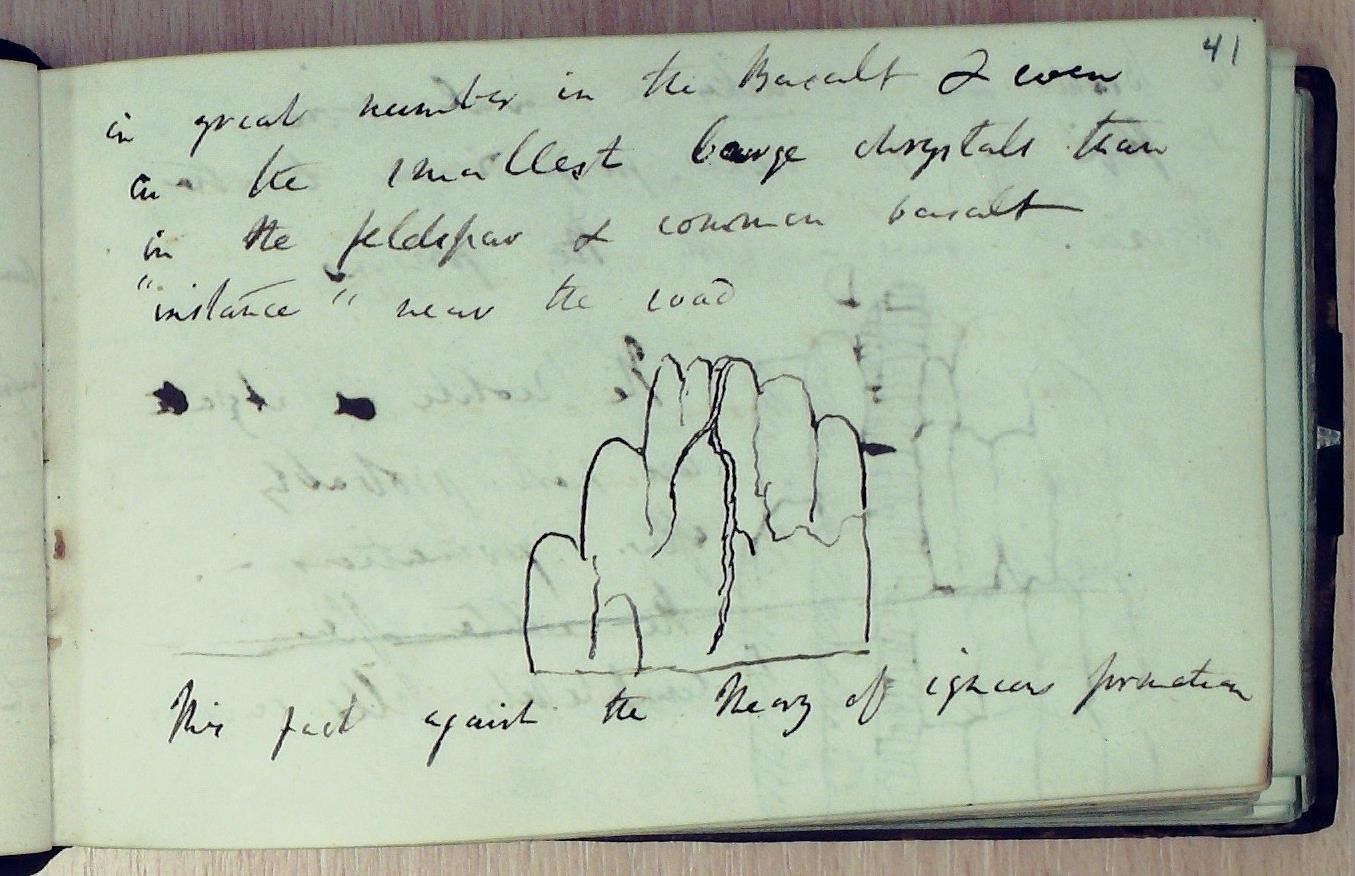 41
in great number in the Basalt & even
in the smallest large chrystals than
in the feldspar & common basalt.
"instance" near the road
This fact against the Theory of igneous formation